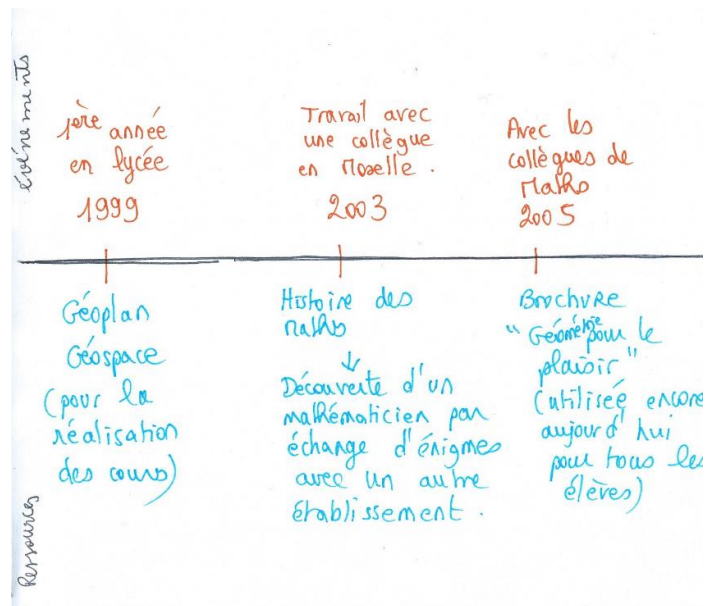 événements
1ère année
en lycée
1999
Travail avec
une collègue
en Moselle.
2003
Avec les
collègues de
Maths
2005
Géoplan
Géospace
(pour la
réalisation
des cours)
Histoire des
maths
↓
Découverte d'un
mathématicien par
échange d'énigmes
avec un autre
établissement.
Brochure
"Géométrie pour le
plaisir"
(utilisée encore
aujourd'hui
pour tous les
élèves)
Ressources